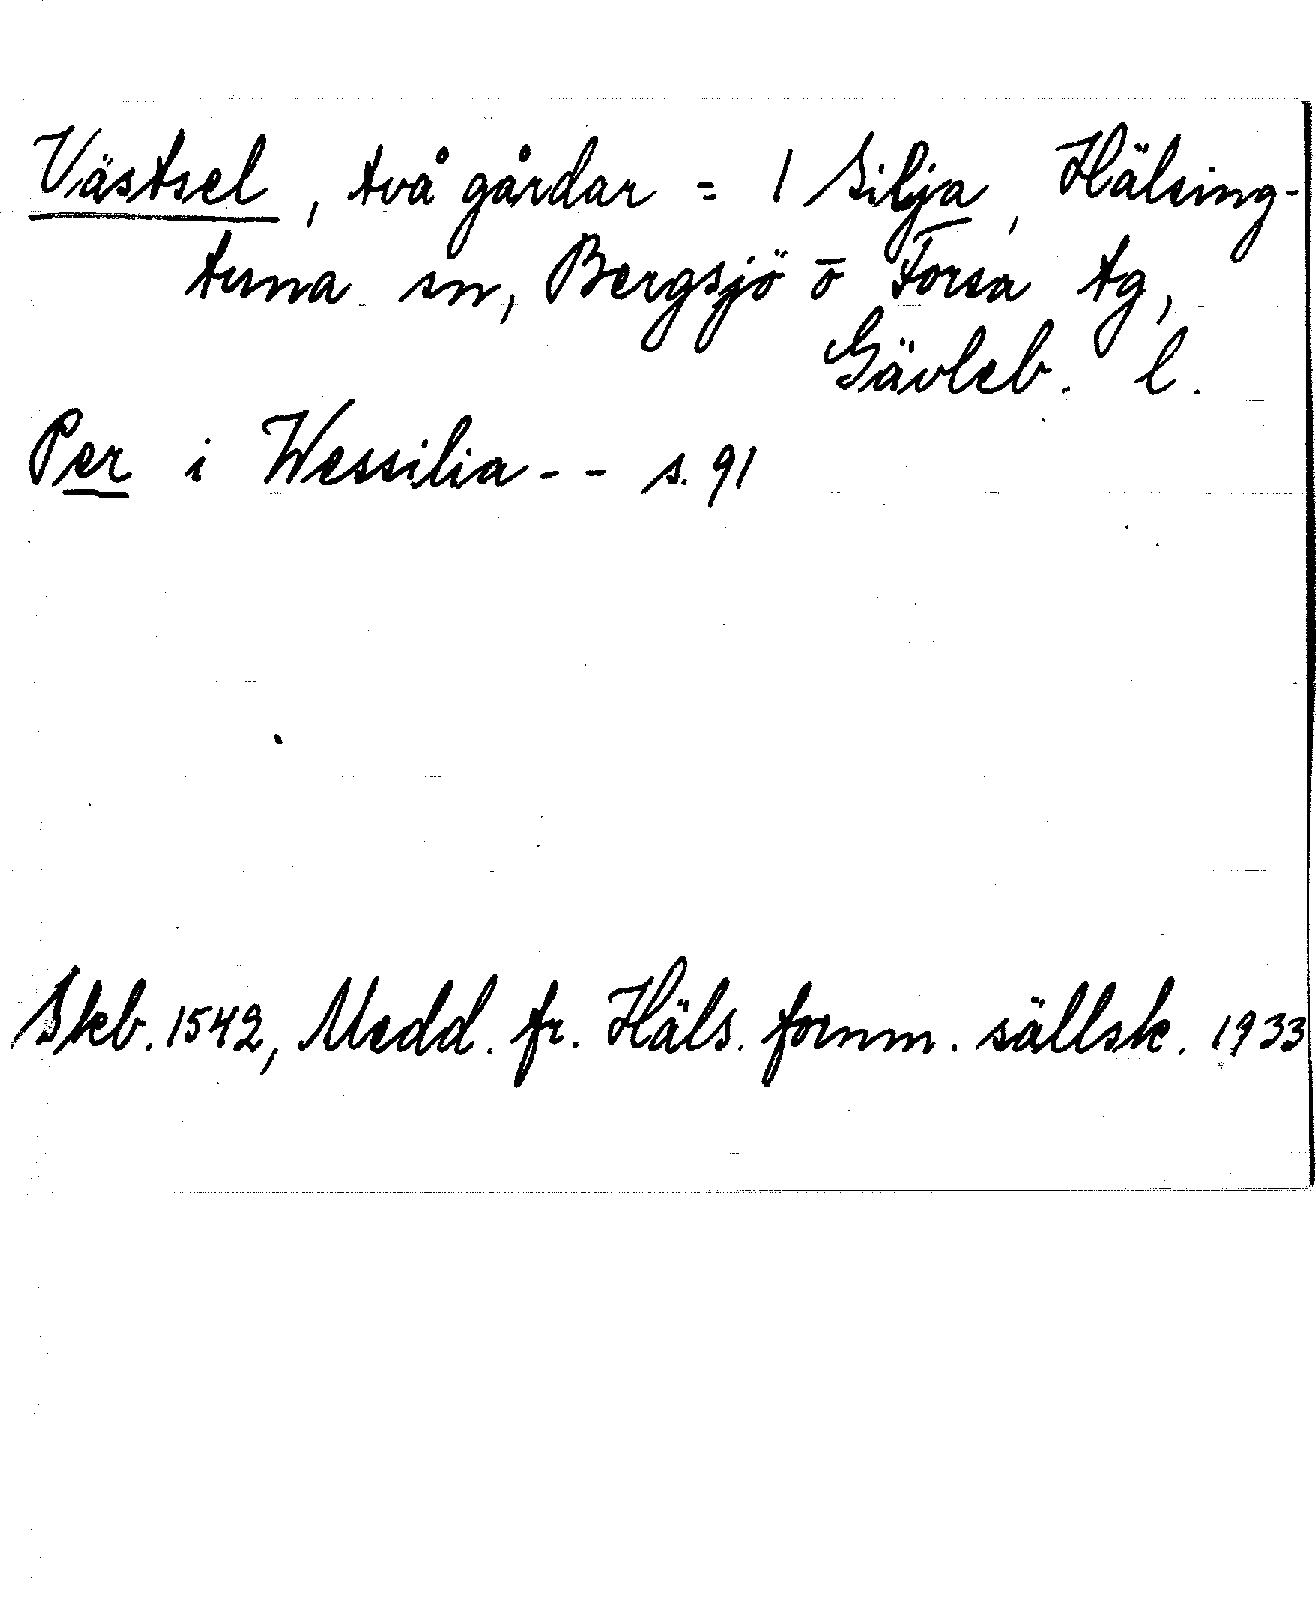 Västsel, två gårdar = 1 Silja, Hälsing-
tuna sn, Bergsjö o Forsa tg,
Gävleb. l.
Per i Wessilia - - s. 91
Skb. 1542, Medd. fr. Häls. fornm. sällsk. 1933